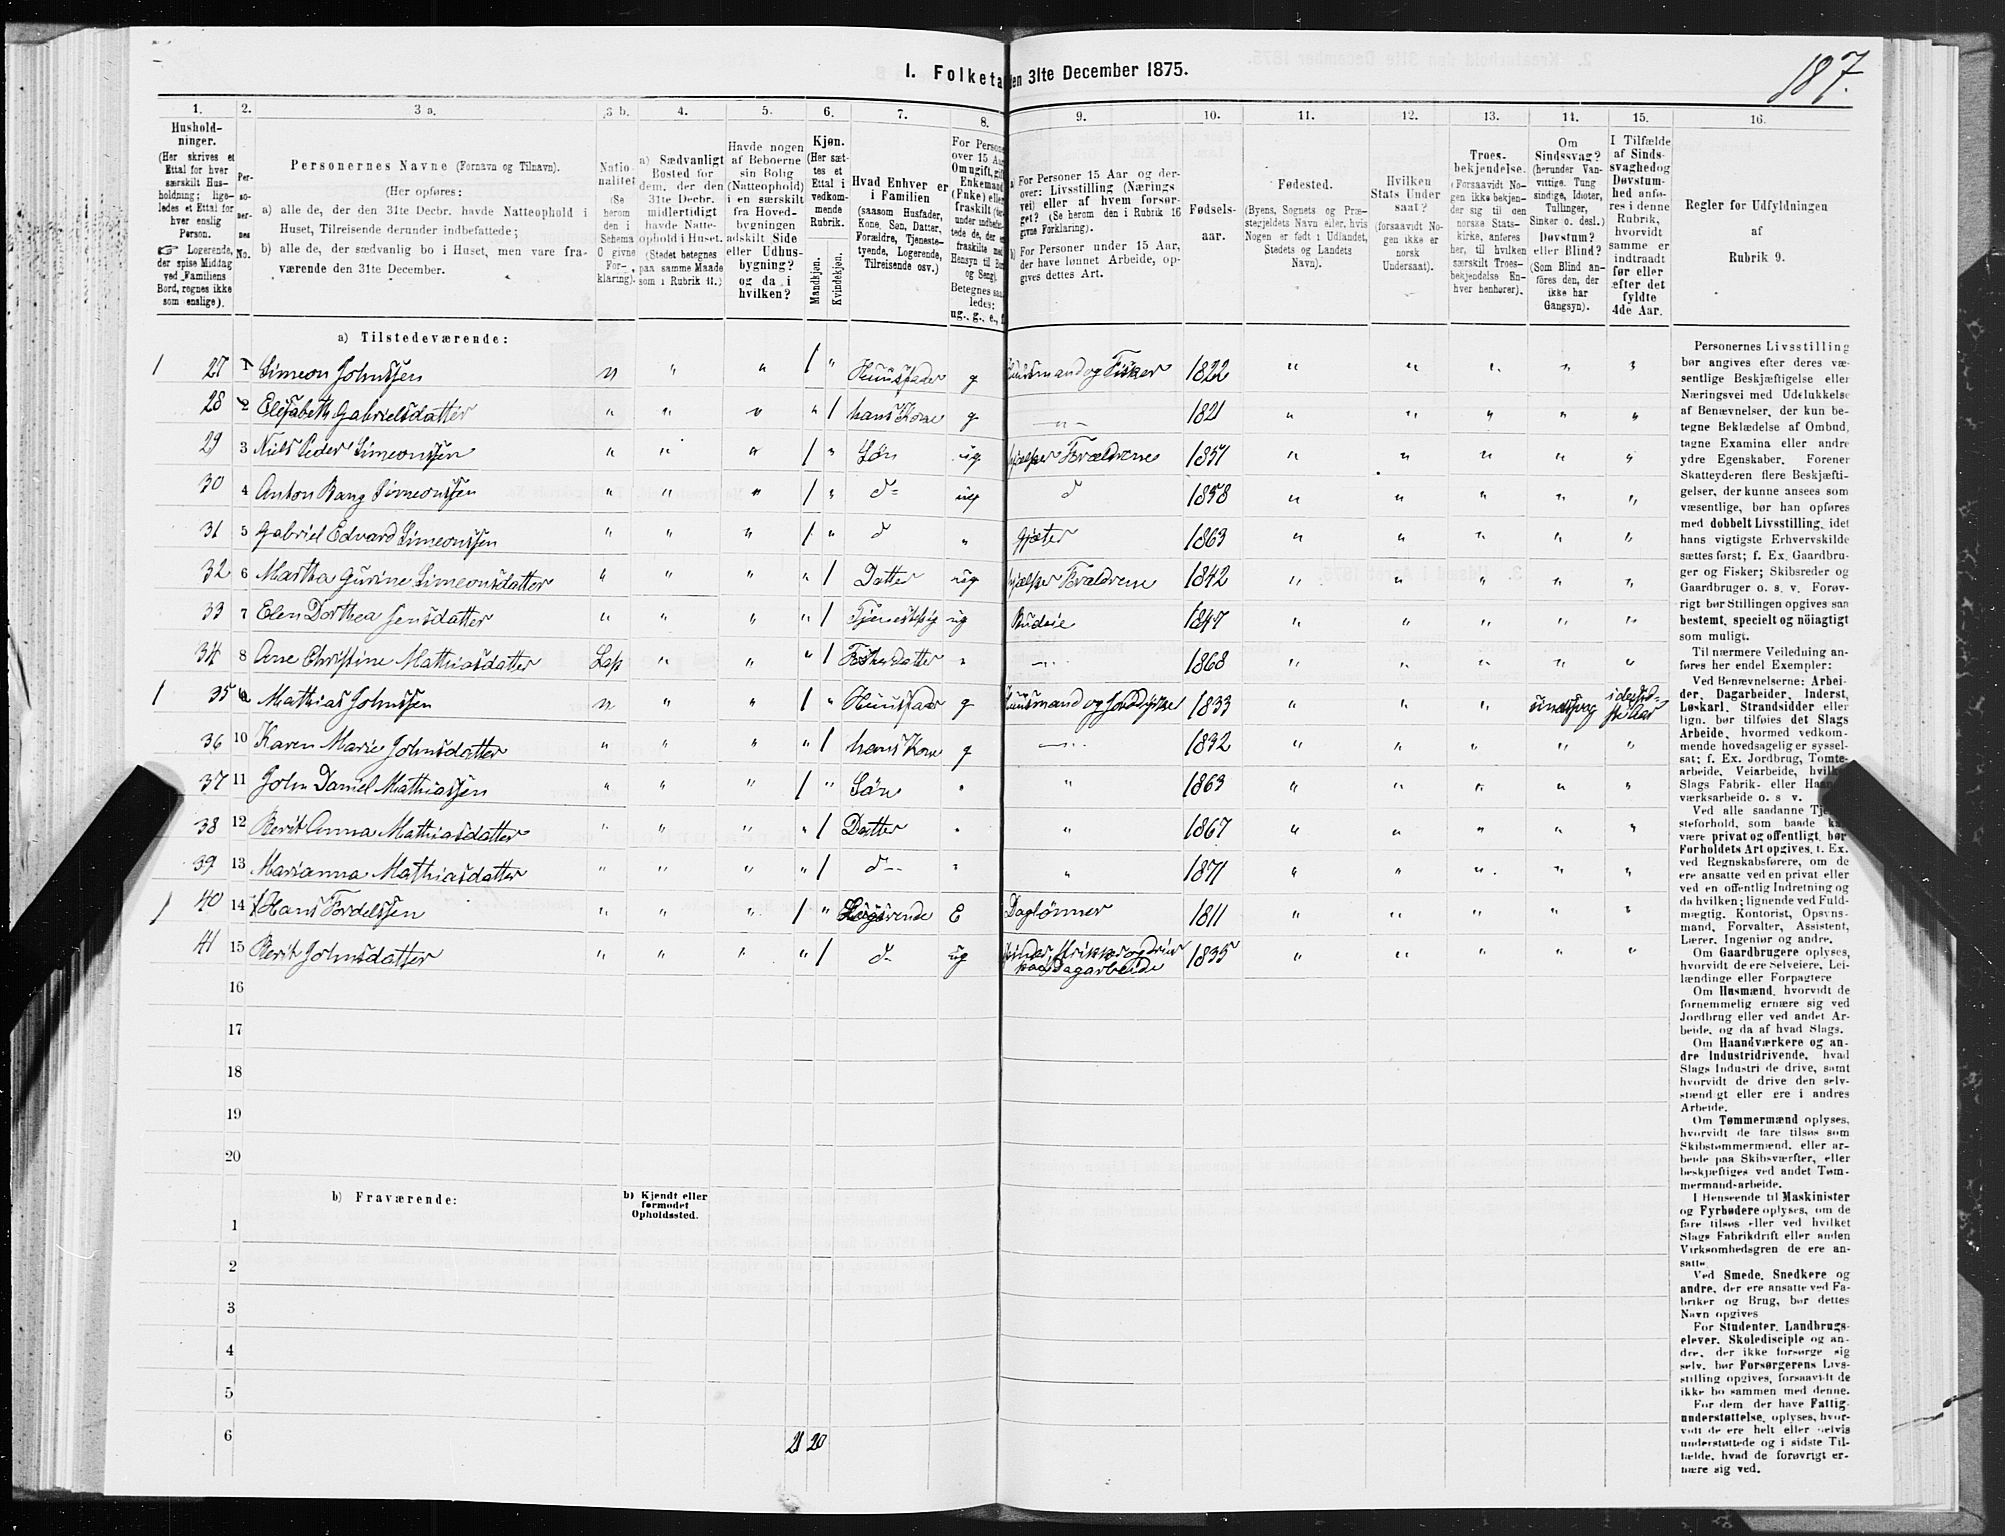 187.
1. Folketa den 31te December 1875.
1. 2. 3 a. 3 b. 4. 5. 6. 7. 8. 9. 10. 11. 12. 13. 14. 15. 16.
Hushold-
ninger.
(Her skrives et
Ettal for hver
særskilt Hus-
holdning; lige-
ledes et Ettal for
hver enslig
Person.
☞ Logerende,
der spise Middag
ved Familiens
Bord, regnes ikke
som enslige).
Per-
so-
ner-
nes
No.
Personernes Navne (Fornavn og Tilnavn).
(Her opføres:
a) alle de, der den 31te Decbr. havde Natteophold i
Huset, Tilreisende derunder indbefattede;
b) alle de, der sædvanlig bo i Huset, men vare fra-
værende den 31te December.
Natio-
nalitet
(Se
herom
den i
Schema
C givne
For-
klaring).
a) Sædvanligt
Bosted for
dem, der den
31te Decbr.
midlertidigt
havde Natte-
ophold i Huset.
(Stedet betegnes
paa samme Maade
som i Rubrik 11.)
Havde nogen
af Beboerne
sin Bolig
(Natteophold)
i en særskilt
fra Hoved-
bygningen
adskilt Side
eller Udhus-
bygning?
og da i
hvilken?
Kjøn.
(Her sæt-
tes et
Ettal i
vedkom-
mende
Rubrik.
Mandkjøn.
Kvindekjøn.
Hvad Enhver er
i Familien
(saasom Husfader,
Kone, Søn, Datter,
Forældre, Tjeneste-
tyende, Logerende,
Tilreisende osv.)
For Person
over 15 Aa
Om ugift, gif
Enkemand
(Enke) eller
fraskilt (her-
under indbefat-
tede de, der e
fraskilte med
Hensyn til Bor
og Seng).
Betegnes saa
ledes:
ug., g., e., f.
a) For Personer 15 Aar og der-
over: Livsstilling (Nærings
vei) eller af hvem forsør-
get? (Se herom den i Rubrik 16
givne Forklaring).
b) For Personer under 15 Aar,
der have lønnet Arbeide, op-
gives dettes Art.
Fødsels-
aar.
Fødested.
(Byens, Sognets og Præ-
stegjeldets Navn, eller, hvis
Nogen er født i Udlandet,
Stedets og Landets
Navn).
Hvilken
Stats Under
saat?
(forsaavidt No-
gen ikke er
norsk
Undersaat).
Troes-
bekjendelse.
(Forsaavidt No-
gen ikke bekjen-
der sig til den
norske Stats-
kirke, anføres
her, til hvilken
særskilt Troes-
bekjendelse En-
hver henhører).
Om
Sindssvag?
(herunder Van-
vittige, Tung
sindige, Idioter,
Tullinger,
Sinker o. desl.)
Døvstum?
eller Blind?
(Som Blind an-
føres den, der
ikke har
Gangsyn).
I Tilfælde
af Sinds-
svaghed og
Døvstum-
hed anfø-
res i denne
Rubrik,
hvorvidt
samme er
indtraadt
før eller
efter det
fyldte
4de Aar.
Regler for Udfyldningen
af
Rubrik 9.
a) Tilstedeværende:
1 27 1 Simeon Johnssen n " " 1 " Huusfader g Huusmand og Fisker 1822 " " " " "
28 2 Elisabeth Gabrielsdatter " " " " 1 hans Kone g —"— 1821 " " " " "
29 3 Niels Peder Simeonssen " " " 1 " Søn ug hjælper Forældrene 1851 " " " " "
30 4 Anton Bang Simeonssen " " " 1 " d= ug d 1858 " " " " "
31 5 Gabriel Edvard Simeonssen " " " 1 " d " Gjæter 1863 " " " " "
32 6 Martha Gurine Simeonsdatter " " " " 1 Datter ug hjælper Forældrene 1842 " " " " "
33 7 Elen Dorthea Jensdatter " " " " 1 ug Budeie 1847 " " " " "
34 8 Ane Christine Mathiasdatter Lap " " " 1 Fosterdatter " —"— 1868 " " " " "
1 35 9 Mathias Johnssen n " " 1 " Huusfader g Huusmand og 1833 " " " sindssvag
36 10 Karen Marie Johnsdatter " " " " 1 hans Kone g —"— 1832 " " " " "
37 11 John Daniel Mathiassen " " " 1 " Søn " " 1863 " " " " "
38 12 Berit Anna Mathiasdatter " " " " 1 Datter " " 1867 " " " " "
39 13 Marianna Mathiasdatter " " " " 1 d— " " 1871 " " " " "
1 40 14 Hans Fordelssen " " " 1 " Logerende E Daglønner 1811 " " " " "
41 15 Berit Johnsdatter " " " " 1 d- ug
paa Dagarbeide 1835 " " " " "
16
17
18
19
20
b) Fraværende:
b) Kjendt eller
formodet
Opholdssted.
1
2
3
4
5
6
21 20
Personernes Livsstilling
bør angives efter deres væ-
sentlige Beskjæftigelse eller
Næringsvei med Udelukkelse
af Benævnelser, der kun be-
tegne Beklædelse af Ombud,
tagne Examina eller andre
ydre Egenskaber. Forener
Skatteyderen flere Beskjæfti-
gelser, der kunne ansees som
væsentlige, bør han opføres
med dobbelt Livsstilling, idet
hans vigtigste Erhvervskilde
sættes først; f. Ex. Gaardbru-
ger og Fisker; Skibsreder og
Gaardbruger o. s. v. Forøv-
rigt bør Stillingen opgives saa
bestemt, specielt og nöiagtigt
som muligt.
Til nærmere Veiledning an-
føres her endel Exempler:
Ved Benævnelserne: Arbei-
der, Dagarbeider, Inderst,
Løskarl, Strandsidder eller
lign. bør tilføies det Slags
Arbeide, hvormed vedkom-
mende hovedsagelig er syssel-
sat; f. Ex. Jordbrug, Tomte-
arbeide, Veiarbeide, hvilke
Slags Fabrik- eller Haand
værksarbeide o. s v.
Ved alle saadanne Tje
steforhold, som baade ka
være privat og offentligt, bør
Forholdets Art opgives, t. Ex.
ved Regnskabsførere, om de
ere ansatte ved en privat eller
ved en offentlig Indretning og
da hvilken; lignende ved Fuld-
mægtig, Kontorist, Opsyns-
mand, Forvalter, Assistent,
Lærer, Ingeniør og andre.
Om Gaardbrugere oplyses,
hvorvidt de ere Selveiere, Lei-
lændinge eller Forpagtere
Om Husmænd, hvorvidt de
fornemmelig ernære sig ved
Jordbrug eller ved andet Ar-
beide, og da af hvad Slags.
Om Haandværkere og an-
dre Industridrivende, hvad
Slags Industri de drive, samt
hvorvidt de drive den selv-
stændigt eller ere i andres
Arbeide.
Om Tømmermænd oplyses,
hvorvidt de fare tilsøs som
Skibstømmermænd, eller ar-
beide paa Skibsværfter, eller
beskjæftiges ved andet Tøm-
mermand-arbeide.
I Henseende til Maskinister
og Fyrbødere oplyses, om de
fare tilsøs eller ved hvilket
Slags Fabrikdrift eller anden
Virksomhedsgren de ere an-
satte.
Ved Smede, Snedkere og
andre, der ere ansatte ved Fa-
briker og Brug, bør dettes
Navn opgives
For Studenter, Landbrugs-
elever, Skoledisciple og an-
dre, der ikke forsørge sig
selv, bør Forsørgerens Livs-
stilling opgives, forsaavidt de
ikke bo sammen med denne.
For dem, der have Fattig-
understøttelse, oplyses, hvor-
vidt de ere helt eller delvis
understøttede og i sidste Til-
fælde, hvad de forøvrigt er-
nære sig ved.